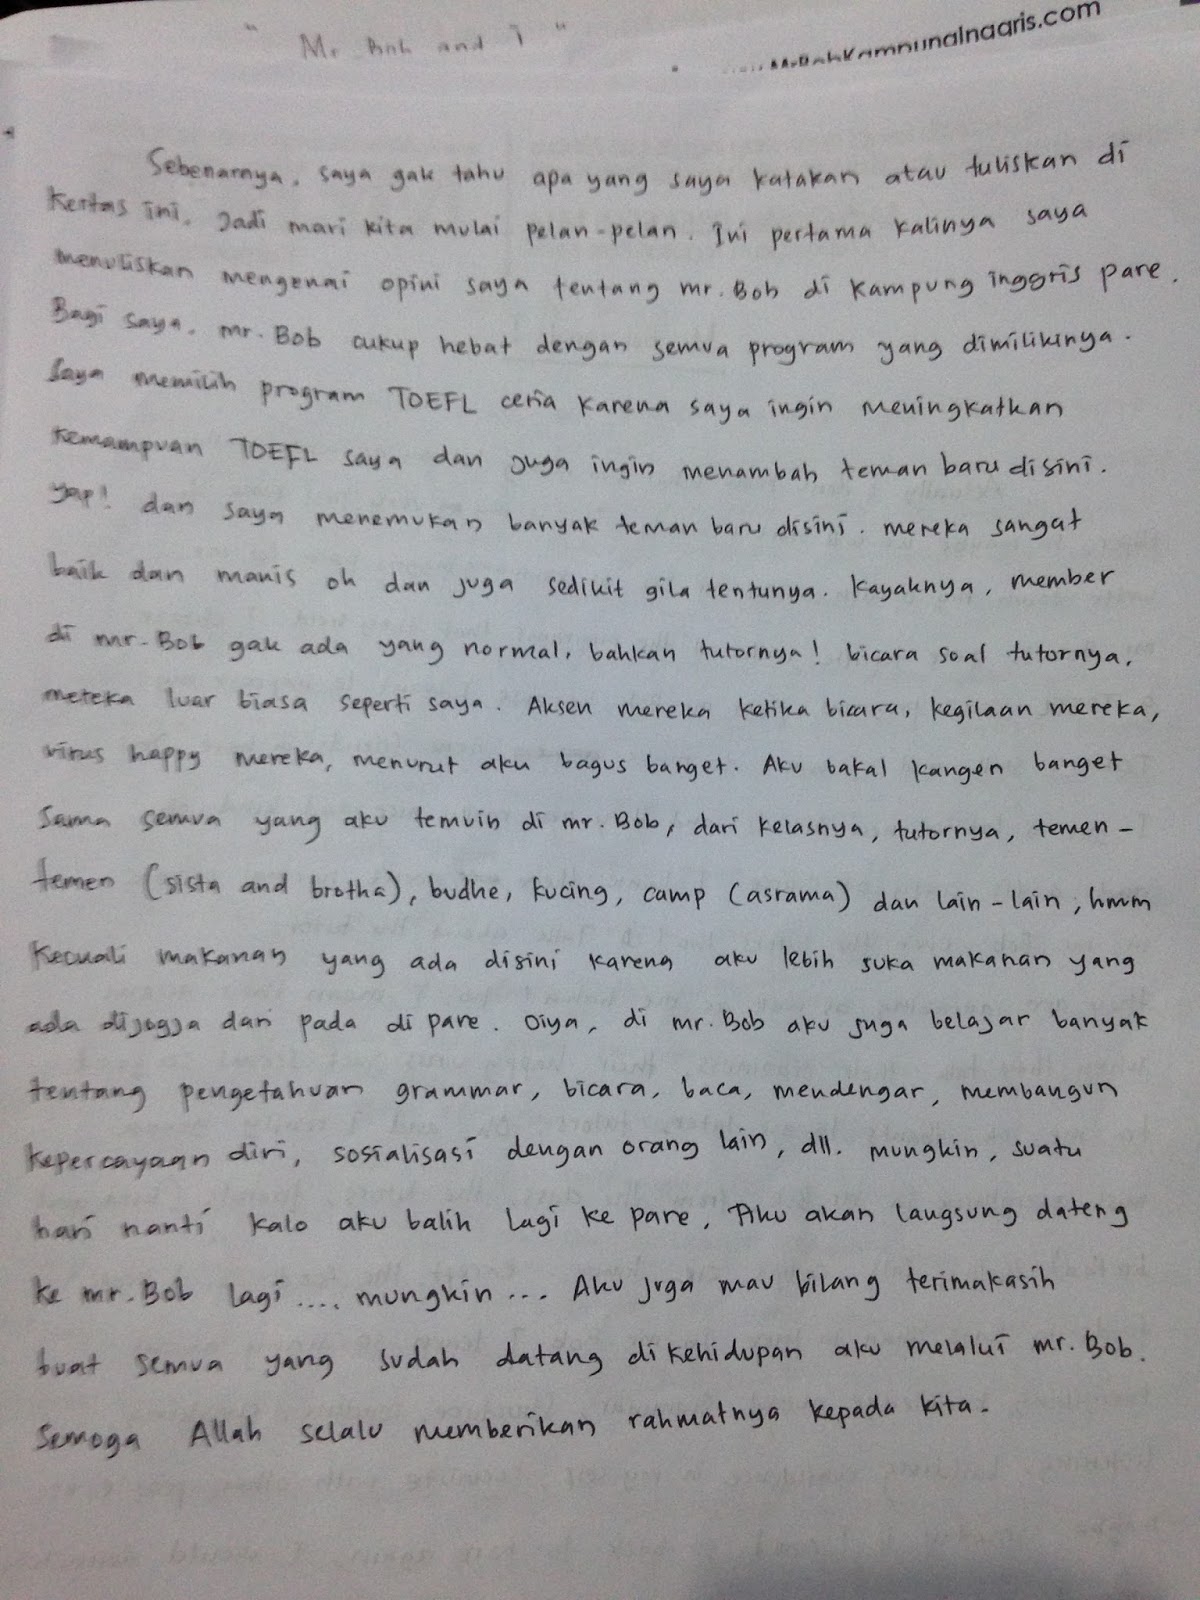 " Mr. Bob and I "
MrBobKampungInggris.com
Sebenarnya, saya gak tahu apa yang saya katakan atau tuliskan di
kertas ini. Jadi mari kita mulai pelan-pelan. Ini pertama kalinya saya
menuliskan mengenai opini saya tentang mr. Bob di kampung inggris pare.
Bagi saya, mr. Bob cukup hebat dengan semua program yang dimilikinya.
Saya memilih program TOEFL ceria karena saya ingin meningkatkan
kemampuan TOEFL saya dan juga ingin menambah teman baru disini.
yap! dan saya menemukan banyak teman baru disini. mereka sangat
baik dan manis oh dan juga sedikit gila tentunya. kayaknya, member
di mr. Bob gak ada yang normal, bahkan tutornya! bicara soal tutornya,
mereka luar biasa seperti saya. Aksen mereka ketika bicara, kegilaan mereka,
virus happy mereka, menurut aku bagus banget. Aku bakal kangen banget
sama semua yang aku temuin di mr. Bob, dari kelasnya, tutornya, temen-
temen (sista and brotha), budhe, kucing, camp (asrama) dan lain-lain, hmm
kecuali makanan yang ada disini karena aku lebih suka makanan yang
ada dijogja dari pada di pare. Oiya, di mr. Bob aku juga belajar banyak
tentang pengetahuan grammar, bicara, baca, mendengar, membangun
kepercayaan diri, sosialisasi dengan orang lain, dll. mungkin, suatu
hari nanti kalo aku balik lagi ke pare, Aku akan langsung dateng
ke mr. Bob lagi .... mungkin ... Aku juga mau bilang terimakasih
buat semua yang sudah datang di kehidupan aku melalui mr. Bob.
Semoga Allah selalu memberikan rahmatnya kepada kita.